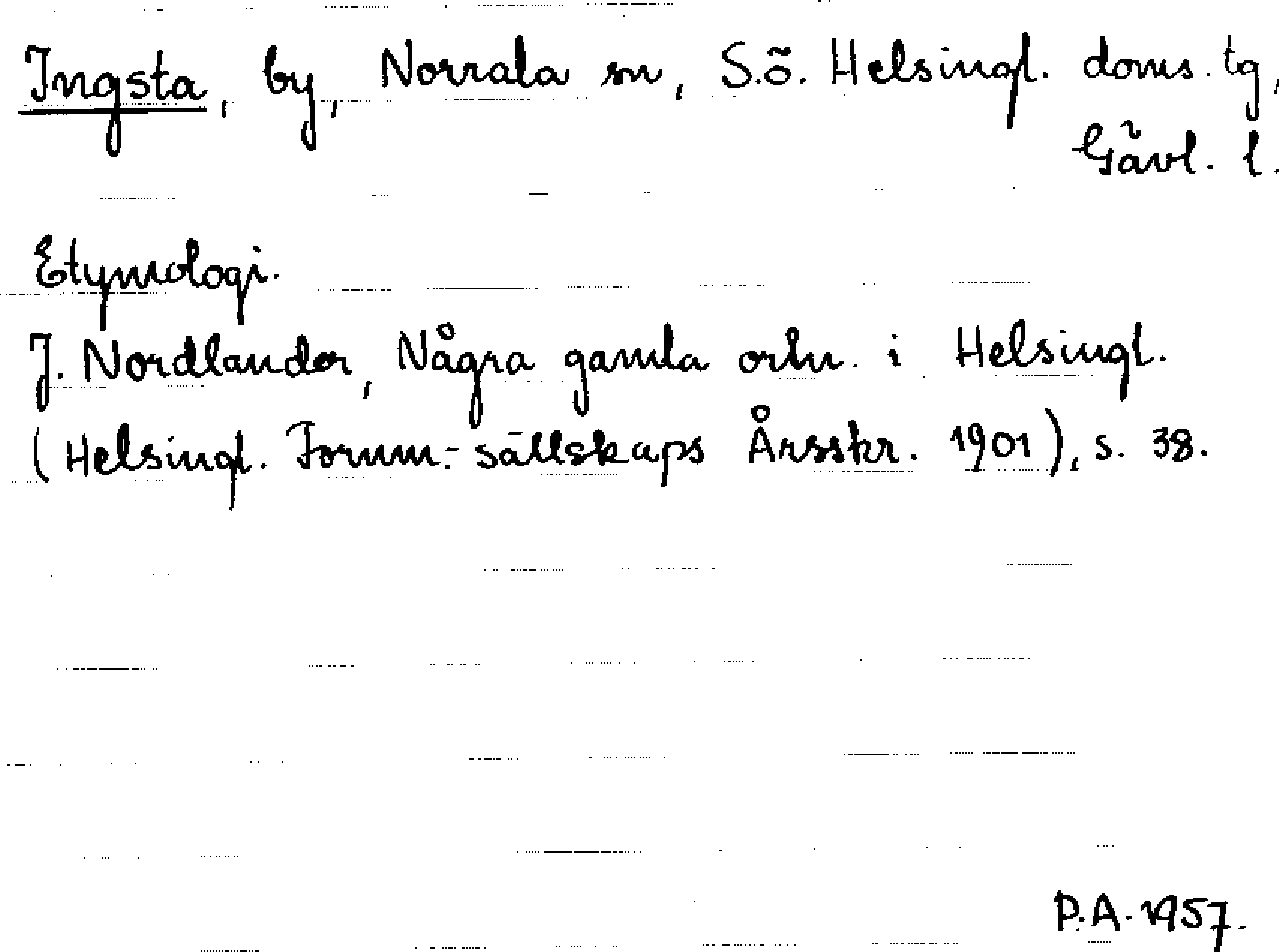 Ingsta, by, Norrala sn, S.ö. Helsingl. doms. tg,
Gävl. l.
Etymologi.
J. Nordlander, Några gamla ortn. i Helsingl.
(Helsingl. Fornm.-sällskaps Årsskr. 1901), s. 38.
P.A. 1957.